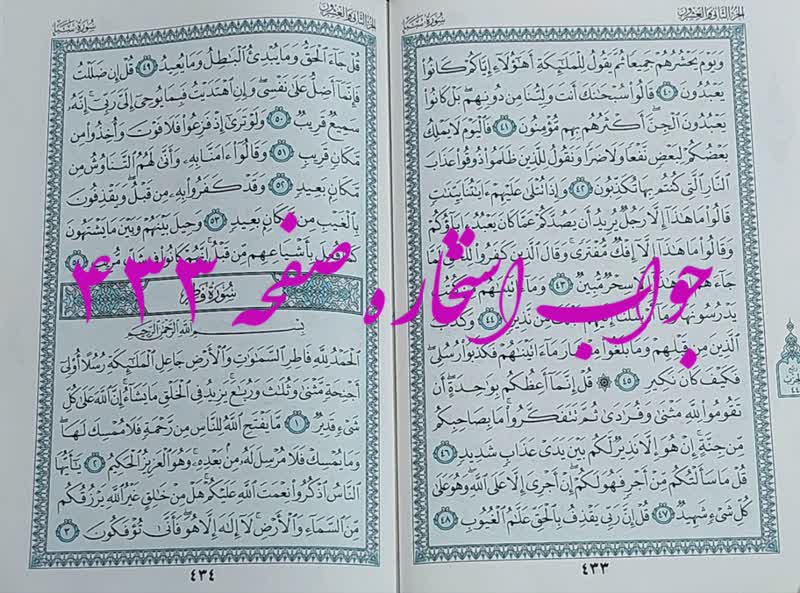 الجزء الثاني والعشرون
سورة سبإ
ويوم يحشرهم جميعا ثم يقول للملئكة أهؤلاء إياكم كانوا
يعبدون ٤٠ قالوا سبحنك أنت ولينا من دونهم بل كانوا
يعبدون الجن أكثرهم بهم مؤمنون ٤١ فاليوم لا يملك
بعضكم لبعض نفعا ولا ضرا ونقول للذين ظلموا ذوقوا عذاب
النار التي كنتم بها تكذبون ٤٢ وإذا تتلى عليهم ءايتنا بينت
قالوا ما هذا إلا رجل يريد أن يصدكم عما كان يعبد ءاباؤكم
وقالوا ما هذا إلا إفك مفترى وقال الذين كفروا للحق لما
جاءهم إن هذا إلا سحر مبين ٤٣ وما ءاتينهم من كتب
يدرسونها وما أرسلنا إليهم قبلك من نذير ٤٤ وكذب
الذين من قبلهم وما بلغوا معشار ما ءاتينهم فكذبوا رسلي
فكيف كان نكير ٤٥ ۞ قل إنما أعظكم بوحدة أن
تقوموا لله مثنى وفردى ثم تتفكروا ما بصاحبكم
من جنة إن هو إلا نذير لكم بين يدي عذاب شديد ٤٦
قل ما سألتكم من أجر فهو لكم إن أجري إلا على الله وهو على
كل شيء شهيد ٤٧ قل إن ربي يقذف بالحق علم الغيوب ٤٨
٤٣٣
الجزء الثاني والعشرون
سورة سبإ
قل جاء الحق وما يبدئ البطل وما يعيد ٤٩ قل إن ضللت
فإنما أضل على نفسي وإن اهتديت فبما يوحي إلي ربي إنه
سميع قريب ٥٠ ولو ترى إذ فزعوا فلا فوت وأخذوا من
مكان قريب ٥١ وقالوا ءامنا به وأنى لهم التناوش من
مكان بعيد ٥٢ وقد كفروا به من قبل ويقذفون
بالغيب من مكان بعيد ٥٣ وحيل بينهم وبين ما يشتهون
كما فعل بأشياعهم من قبل إنهم كانوا في شك مريب ٥٤
سورة فاطر
بسم الله الرحمن الرحيم
الحمد لله فاطر السموت والأرض جاعل الملئكة رسلا أولي
أجنحة مثنى وثلث وربع يزيد في الخلق ما يشاء إن الله على كل
شيء قدير ١ ما يفتح الله للناس من رحمة فلا ممسك لها
وما يمسك فلا مرسل له من بعده وهو العزيز الحكيم ٢ يأيها
الناس اذكروا نعمت الله عليكم هل من خلق غير الله يرزقكم
من السماء والأرض لا إله إلا هو فأنى تؤفكون ٣
٤٣٤
جواب استخاره صفحه ۴۳۳